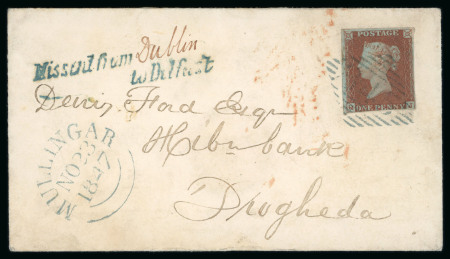 Missent from Dublin
to Belfast
Ford Esqr
Drogheda
MULLINGAR
NO 23
1847
POSTAGE
ONE PENNY